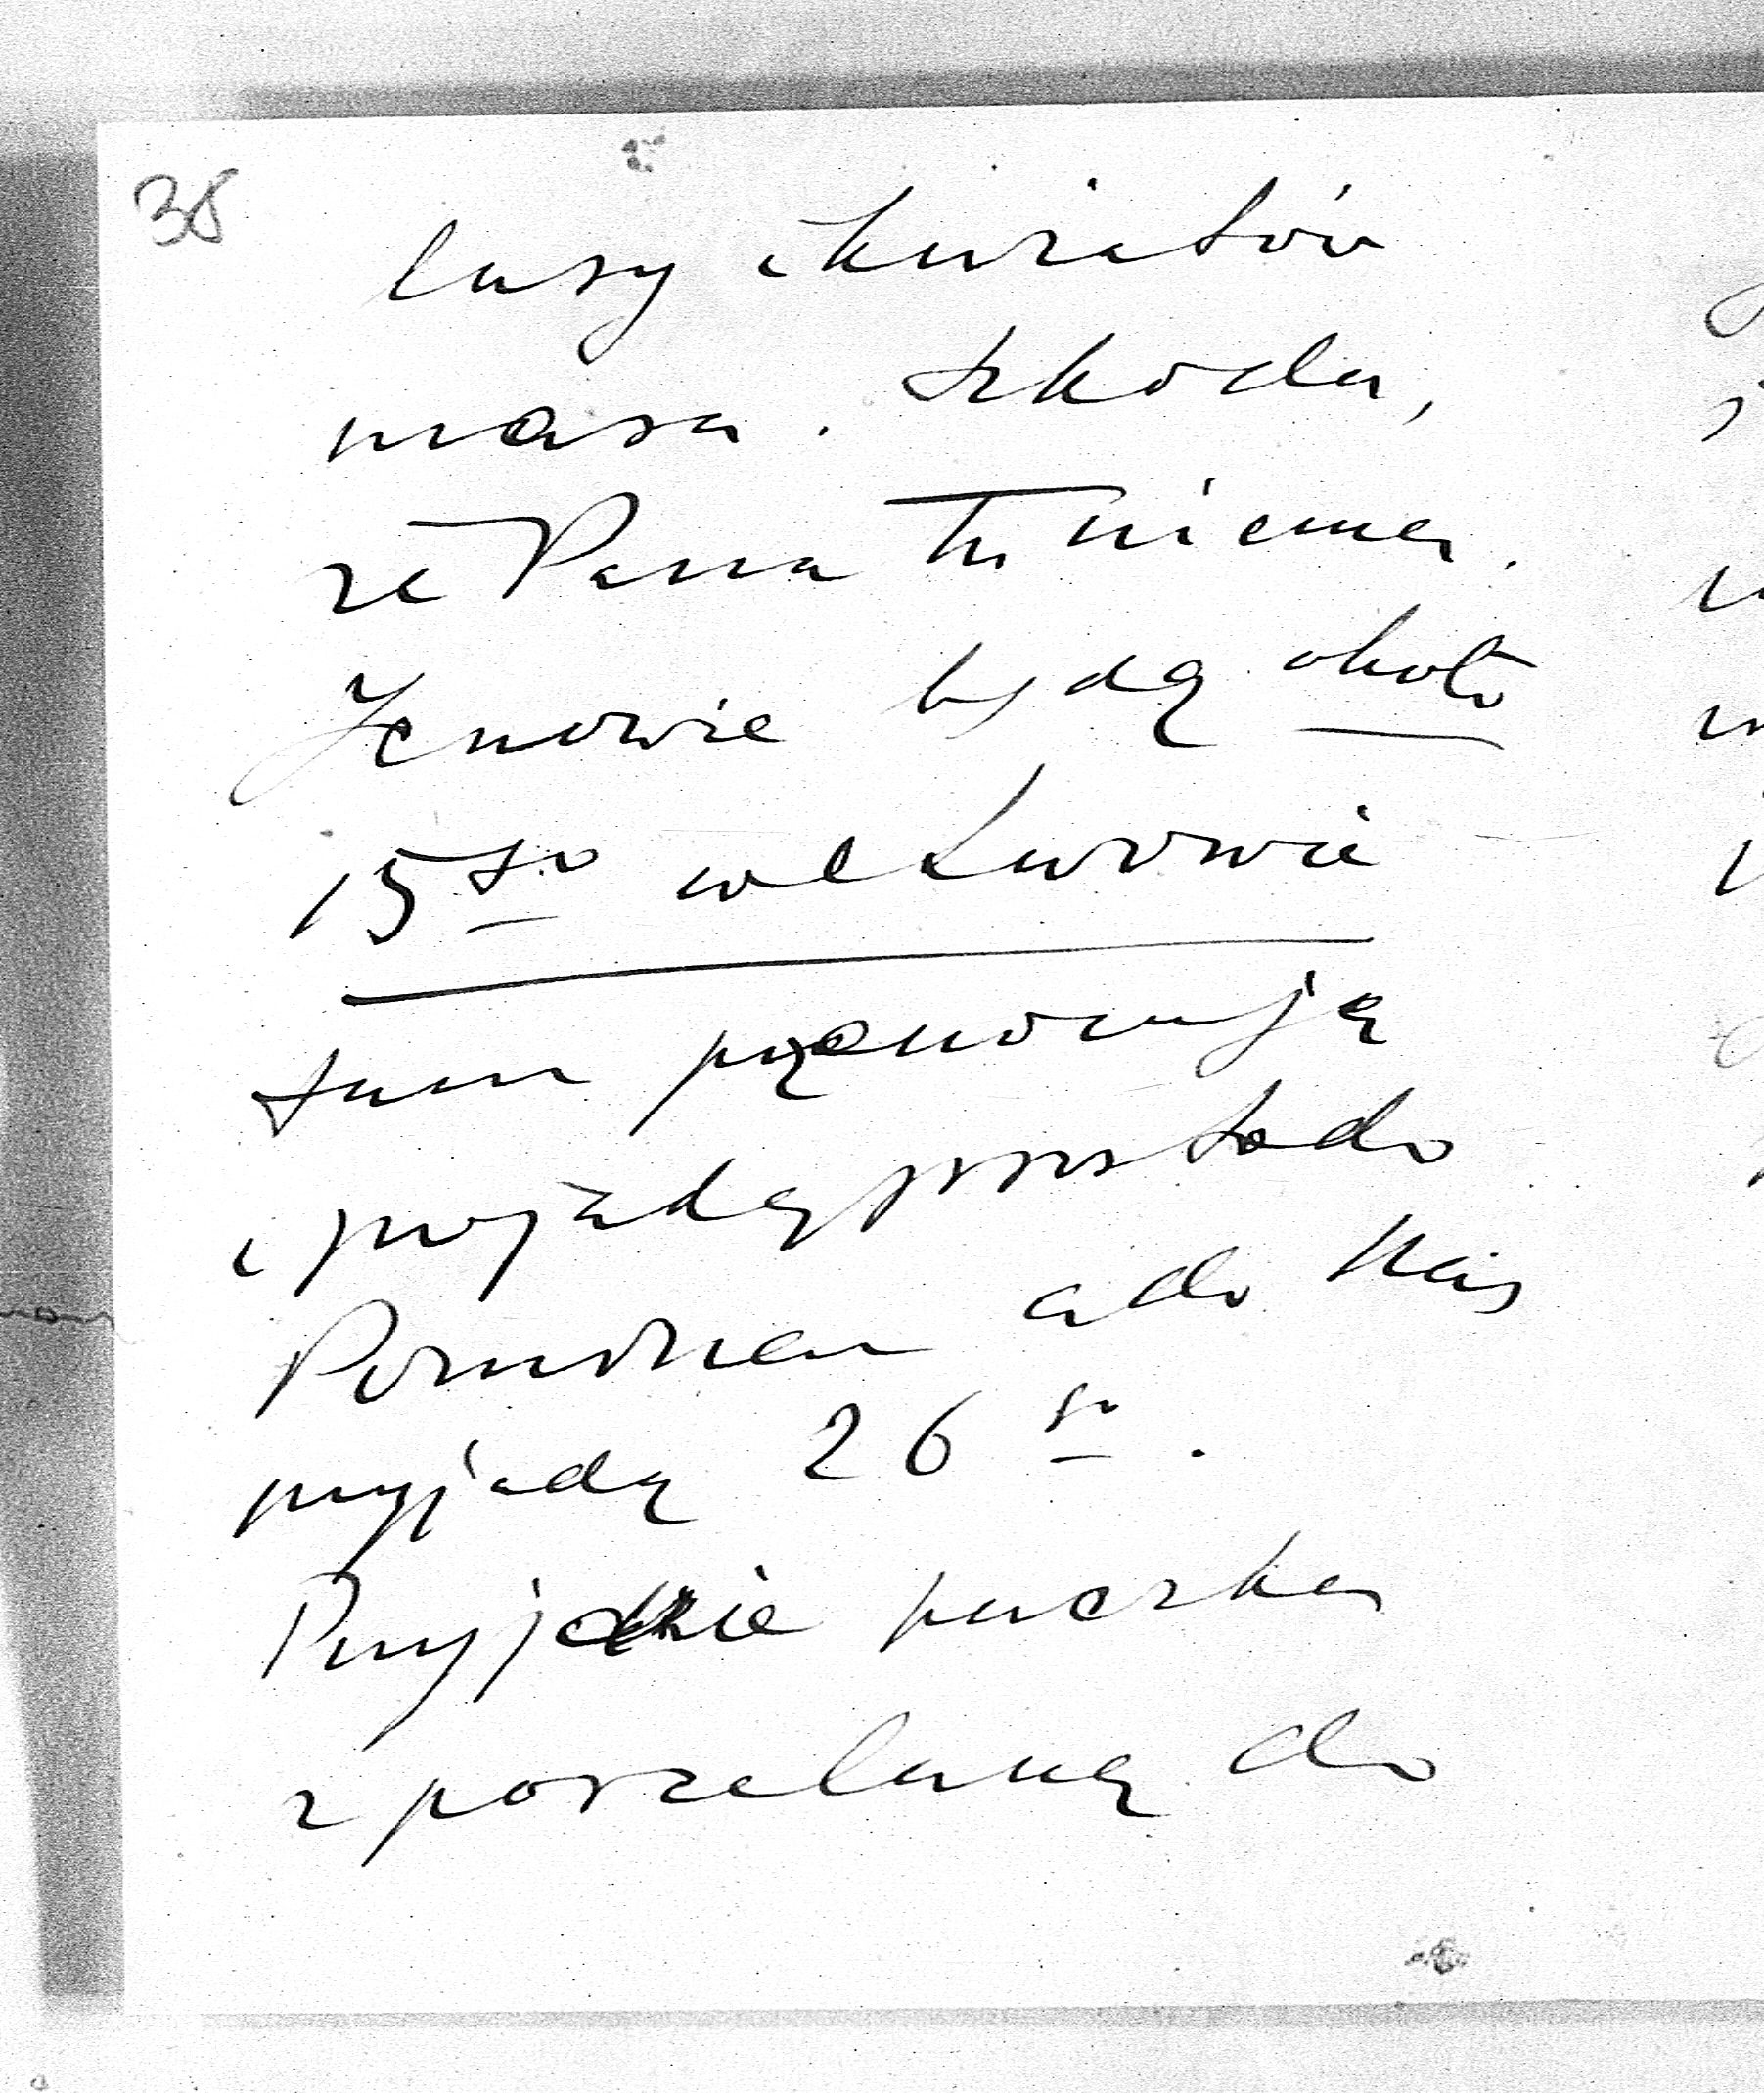 38
lasy i kwiatów
masa. Szkoda,
że Pana tu niema.
Jenowie będą około
15go we Lwowie
tam przenocują
i pojadą prosto do
Poznania a do Nas
przyjadą 26 go.
Przyjdzie paczka
z porcelaną do